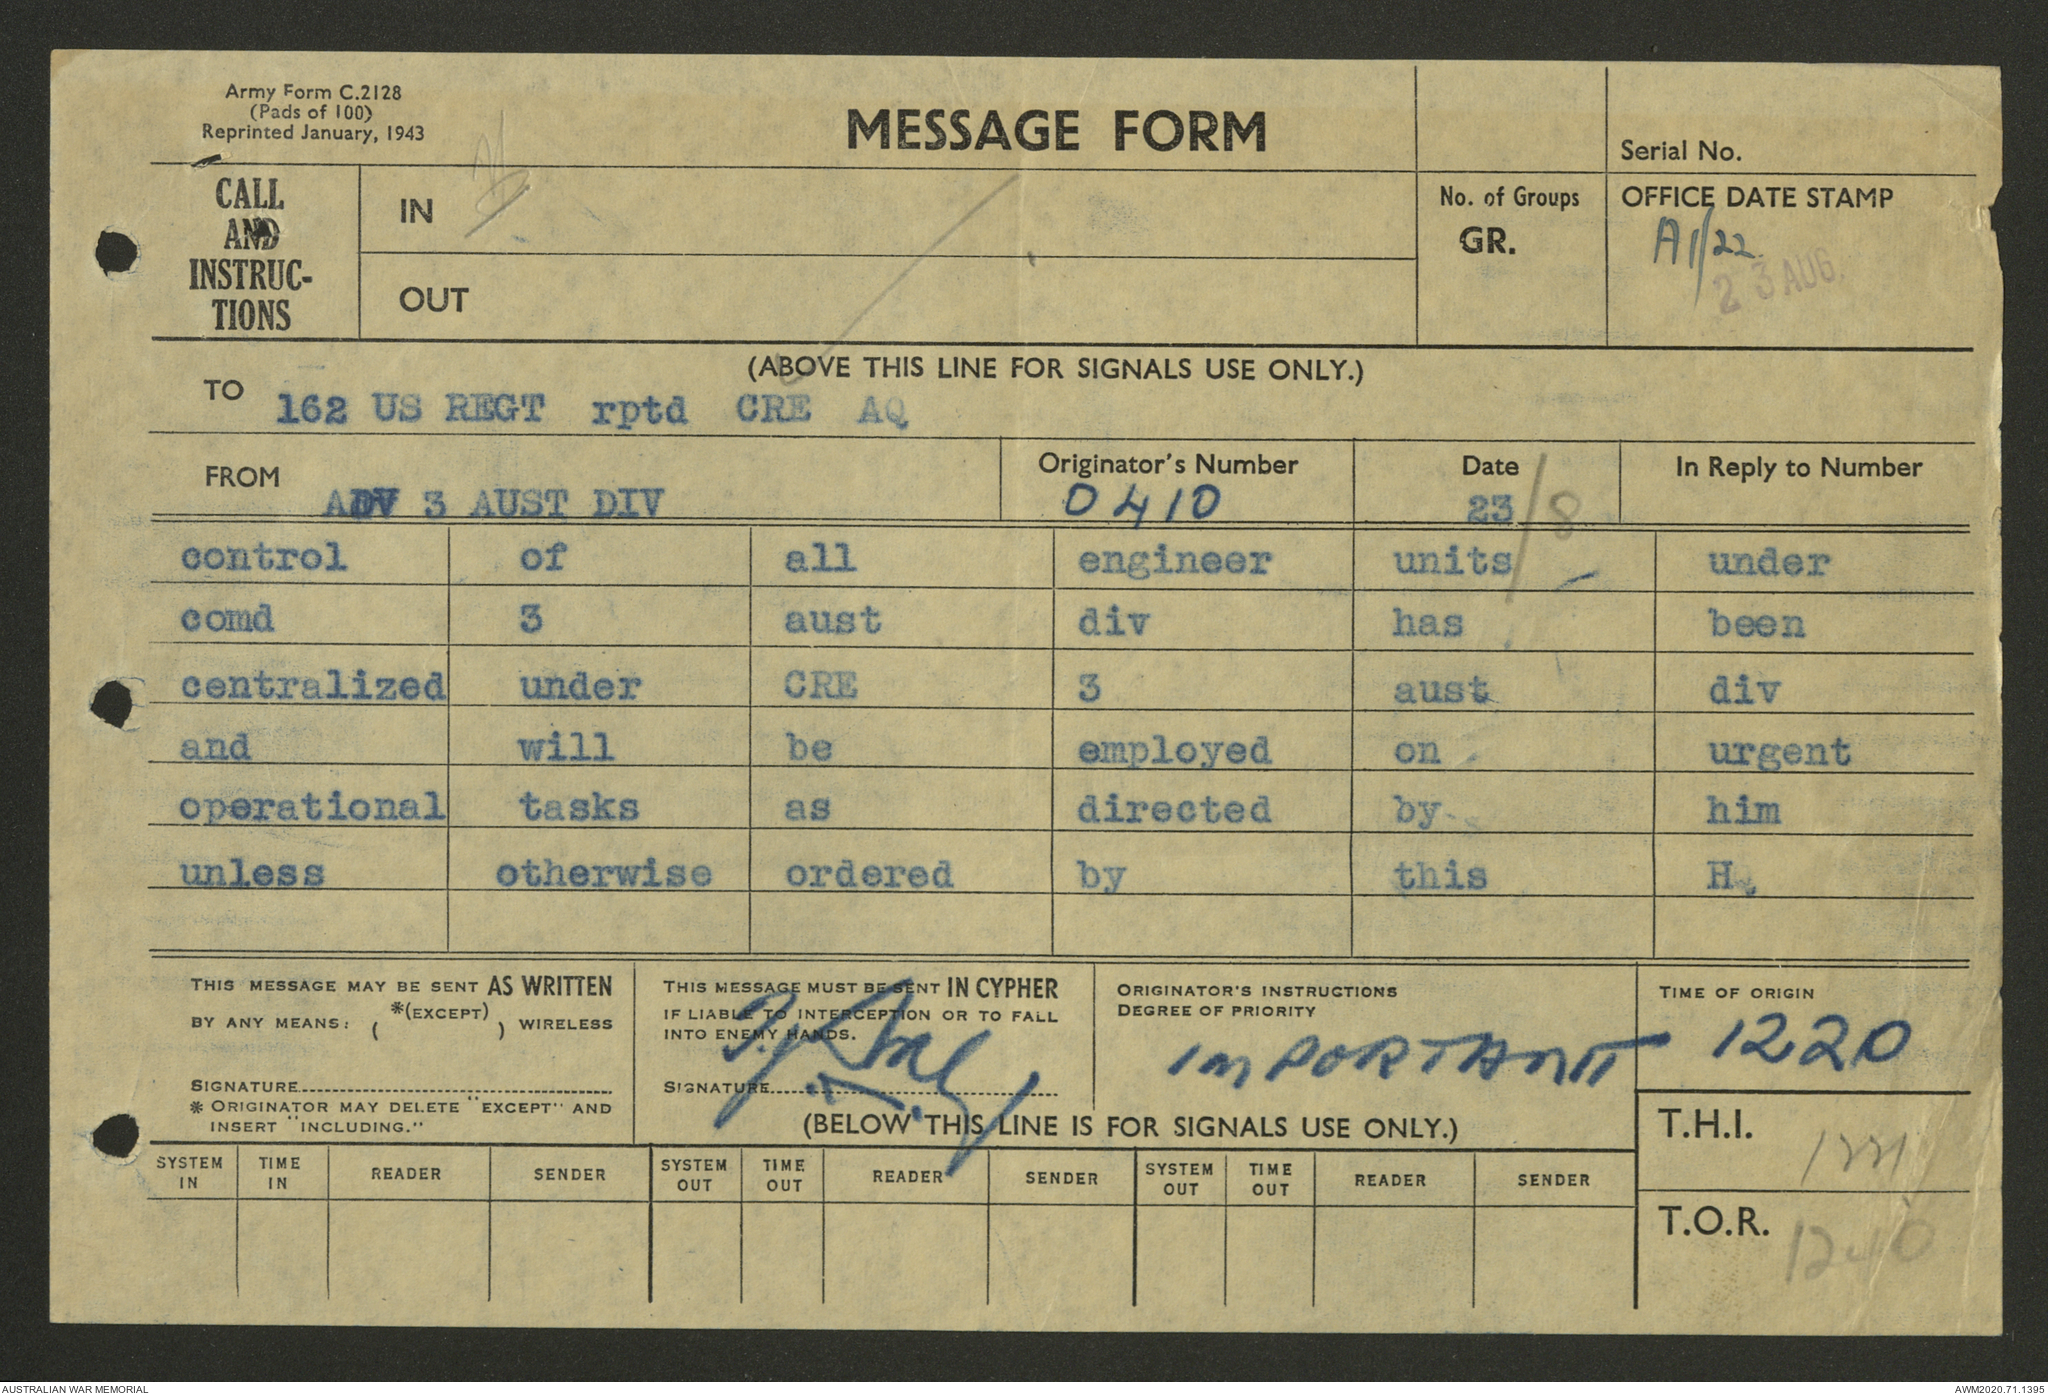 Army Form C.2128
(Pads of 100)
Reprinted January, 1943
MESSAGE FORM
Serial No.
CALL
AND
INSTRUC-
TIONS
IN
OUT
No. of Groups
GR.
OFFICE DATE STAMP
A1/22
23 AUG.
(ABOVE THIS LINE FOR SIGNALS USE ONLY.)
TO 162 US REGT rptd CRE AQ
FROM ADV 3 AUST DIV
Originator's Number
0410
Date
23/8
In Reply to Number
control of all engineer units under
comd 3 aust div has been
centralized under CRE 3 aust div
and will be employed on urgent
operational tasks as directed by him
unless otherwise ordered by this H
THIS MESSAGE MAY BE SENT AS WRITTEN
BY ANY MEANS: ( *(EXCEPT) ) WIRELESS
SIGNATURE
* ORIGINATOR MAY DELETE "EXCEPT" AND
INSERT "INCLUDING."
THIS MESSAGE MUST BE SENT IN CYPHER
IF LIABLE TO INTERCEPTION OR TO FALL
INTO ENEMY HANDS.
SIGNATURE
ORIGINATOR'S INSTRUCTIONS
DEGREE OF PRIORITY
IMPORTANT
TIME OF ORIGIN
1220
(BELOW THIS LINE IS FOR SIGNALS USE ONLY.)
T.H.I.
1221
T.O.R.
1240
SYSTEM IN TIME IN READER SENDER SYSTEM OUT TIME OUT READER SENDER SYSTEM OUT TIME OUT READER SENDER
AUSTRALIAN WAR MEMORIAL
AWM2020.71.1395